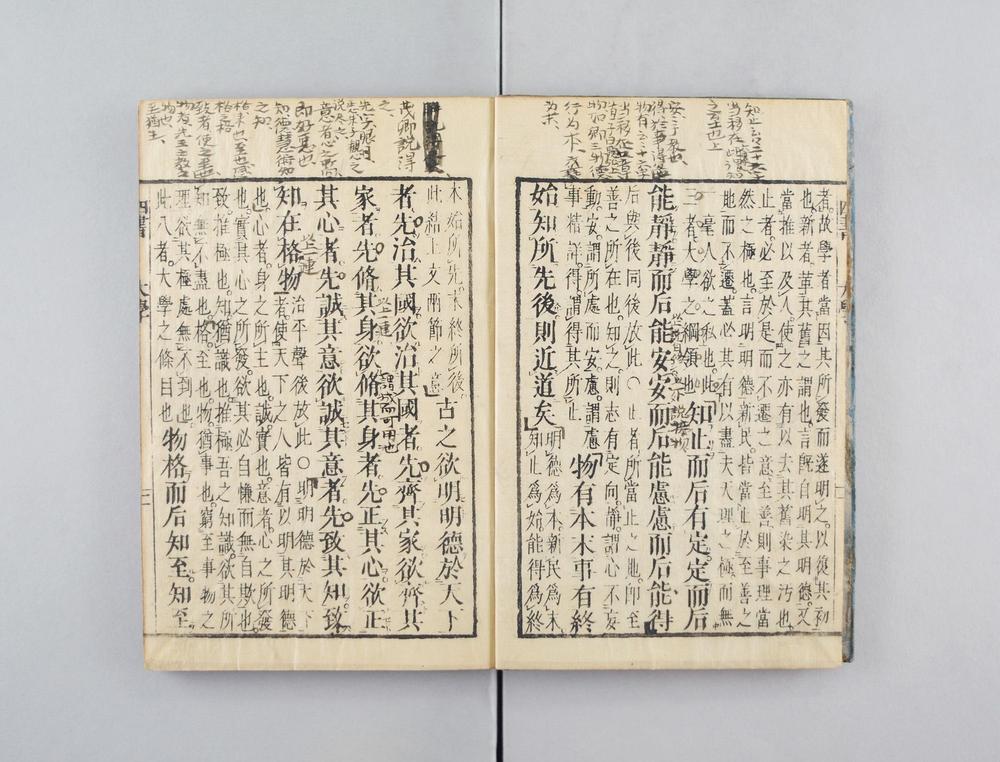 者。故學者當因其所發而遂明之。以復其初
也。新者革其舊之謂也。言既自明其明德。又
當推以及人。使之亦有以去其舊染之汚也。
止者。必至於是而不遷之意。至善則事理當
然之極也。言明明德新民。皆當止於至善之
地而不遷。蓋必其有以盡夫天理之極。而無
一毫人欲之私也。此
三者。大學之綱領也。
知止而后有定定而后
能靜靜而后能安安而后能慮慮而后能得
后與後同後放此○止者所當止之地。即至
善之所在也。知之。則志有定向。靜。謂心不妄
動。安。謂所處而安。慮。謂慮
事精詳。得。謂得其所止。
物有本末事有終
始知所先後則近道矣
明德爲本。新民爲末。
知止爲始。能得爲終。
本始所先。末終所後。
此結上文兩節之意。
古之欲明明德於天下
者先治其國欲治其國者先齊其家欲齊其
家者先脩其身欲脩其身者先正其心欲正
其心者先誠其意欲誠其意者先致其知致
知在格物
治平聲後放此○明明德於天下
者。使天下之人皆有以明其明德
也。心者。身之所主也。誠。實也。意者。心之所發
也。實其心之所發。欲其必自慊而無自欺也。
致。推極也。知。猶識也。推極吾之知識。欲其所
知無不盡也。格。至也。物。猶事也。窮至事物之
理。欲其極處無不到也。
此八者。大學之條目也
物格而后知至知至
茂卿說得
之
即好惡也
之知
格來也至也感
格之格
致者使之至也
四書
大學